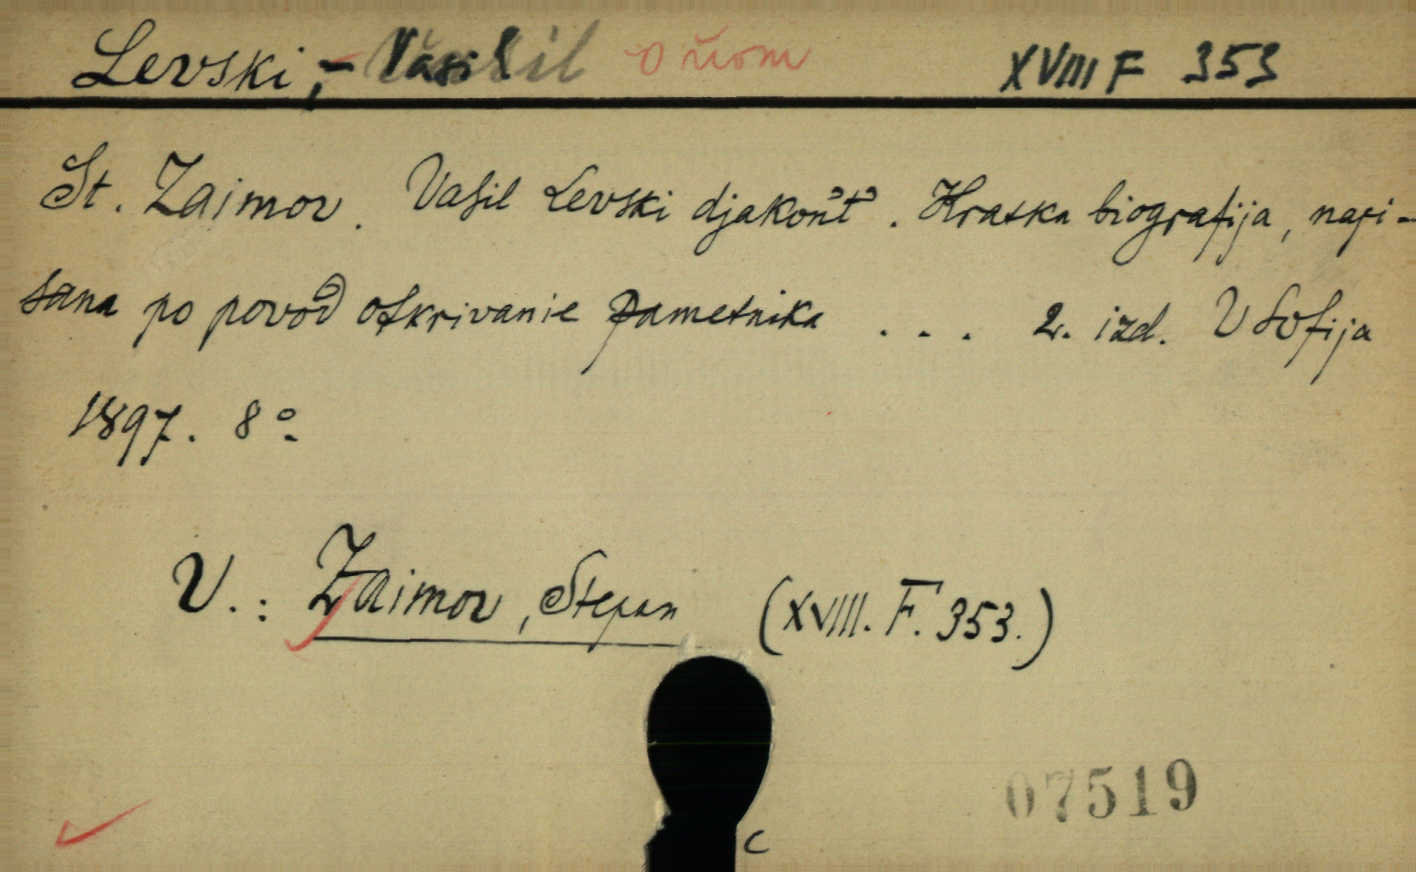 Levski, - Vasil o ňom XVIII F 353
St. Zaimov. Vasil Levski djakonът. Kratka biografija, napi-
sana po povod otkrivanie pametnika . . . 2. izd. V Sofija
1897. 8°.
V.: Zaimov, Stepan (XVIII. F. 353.)
07519
c